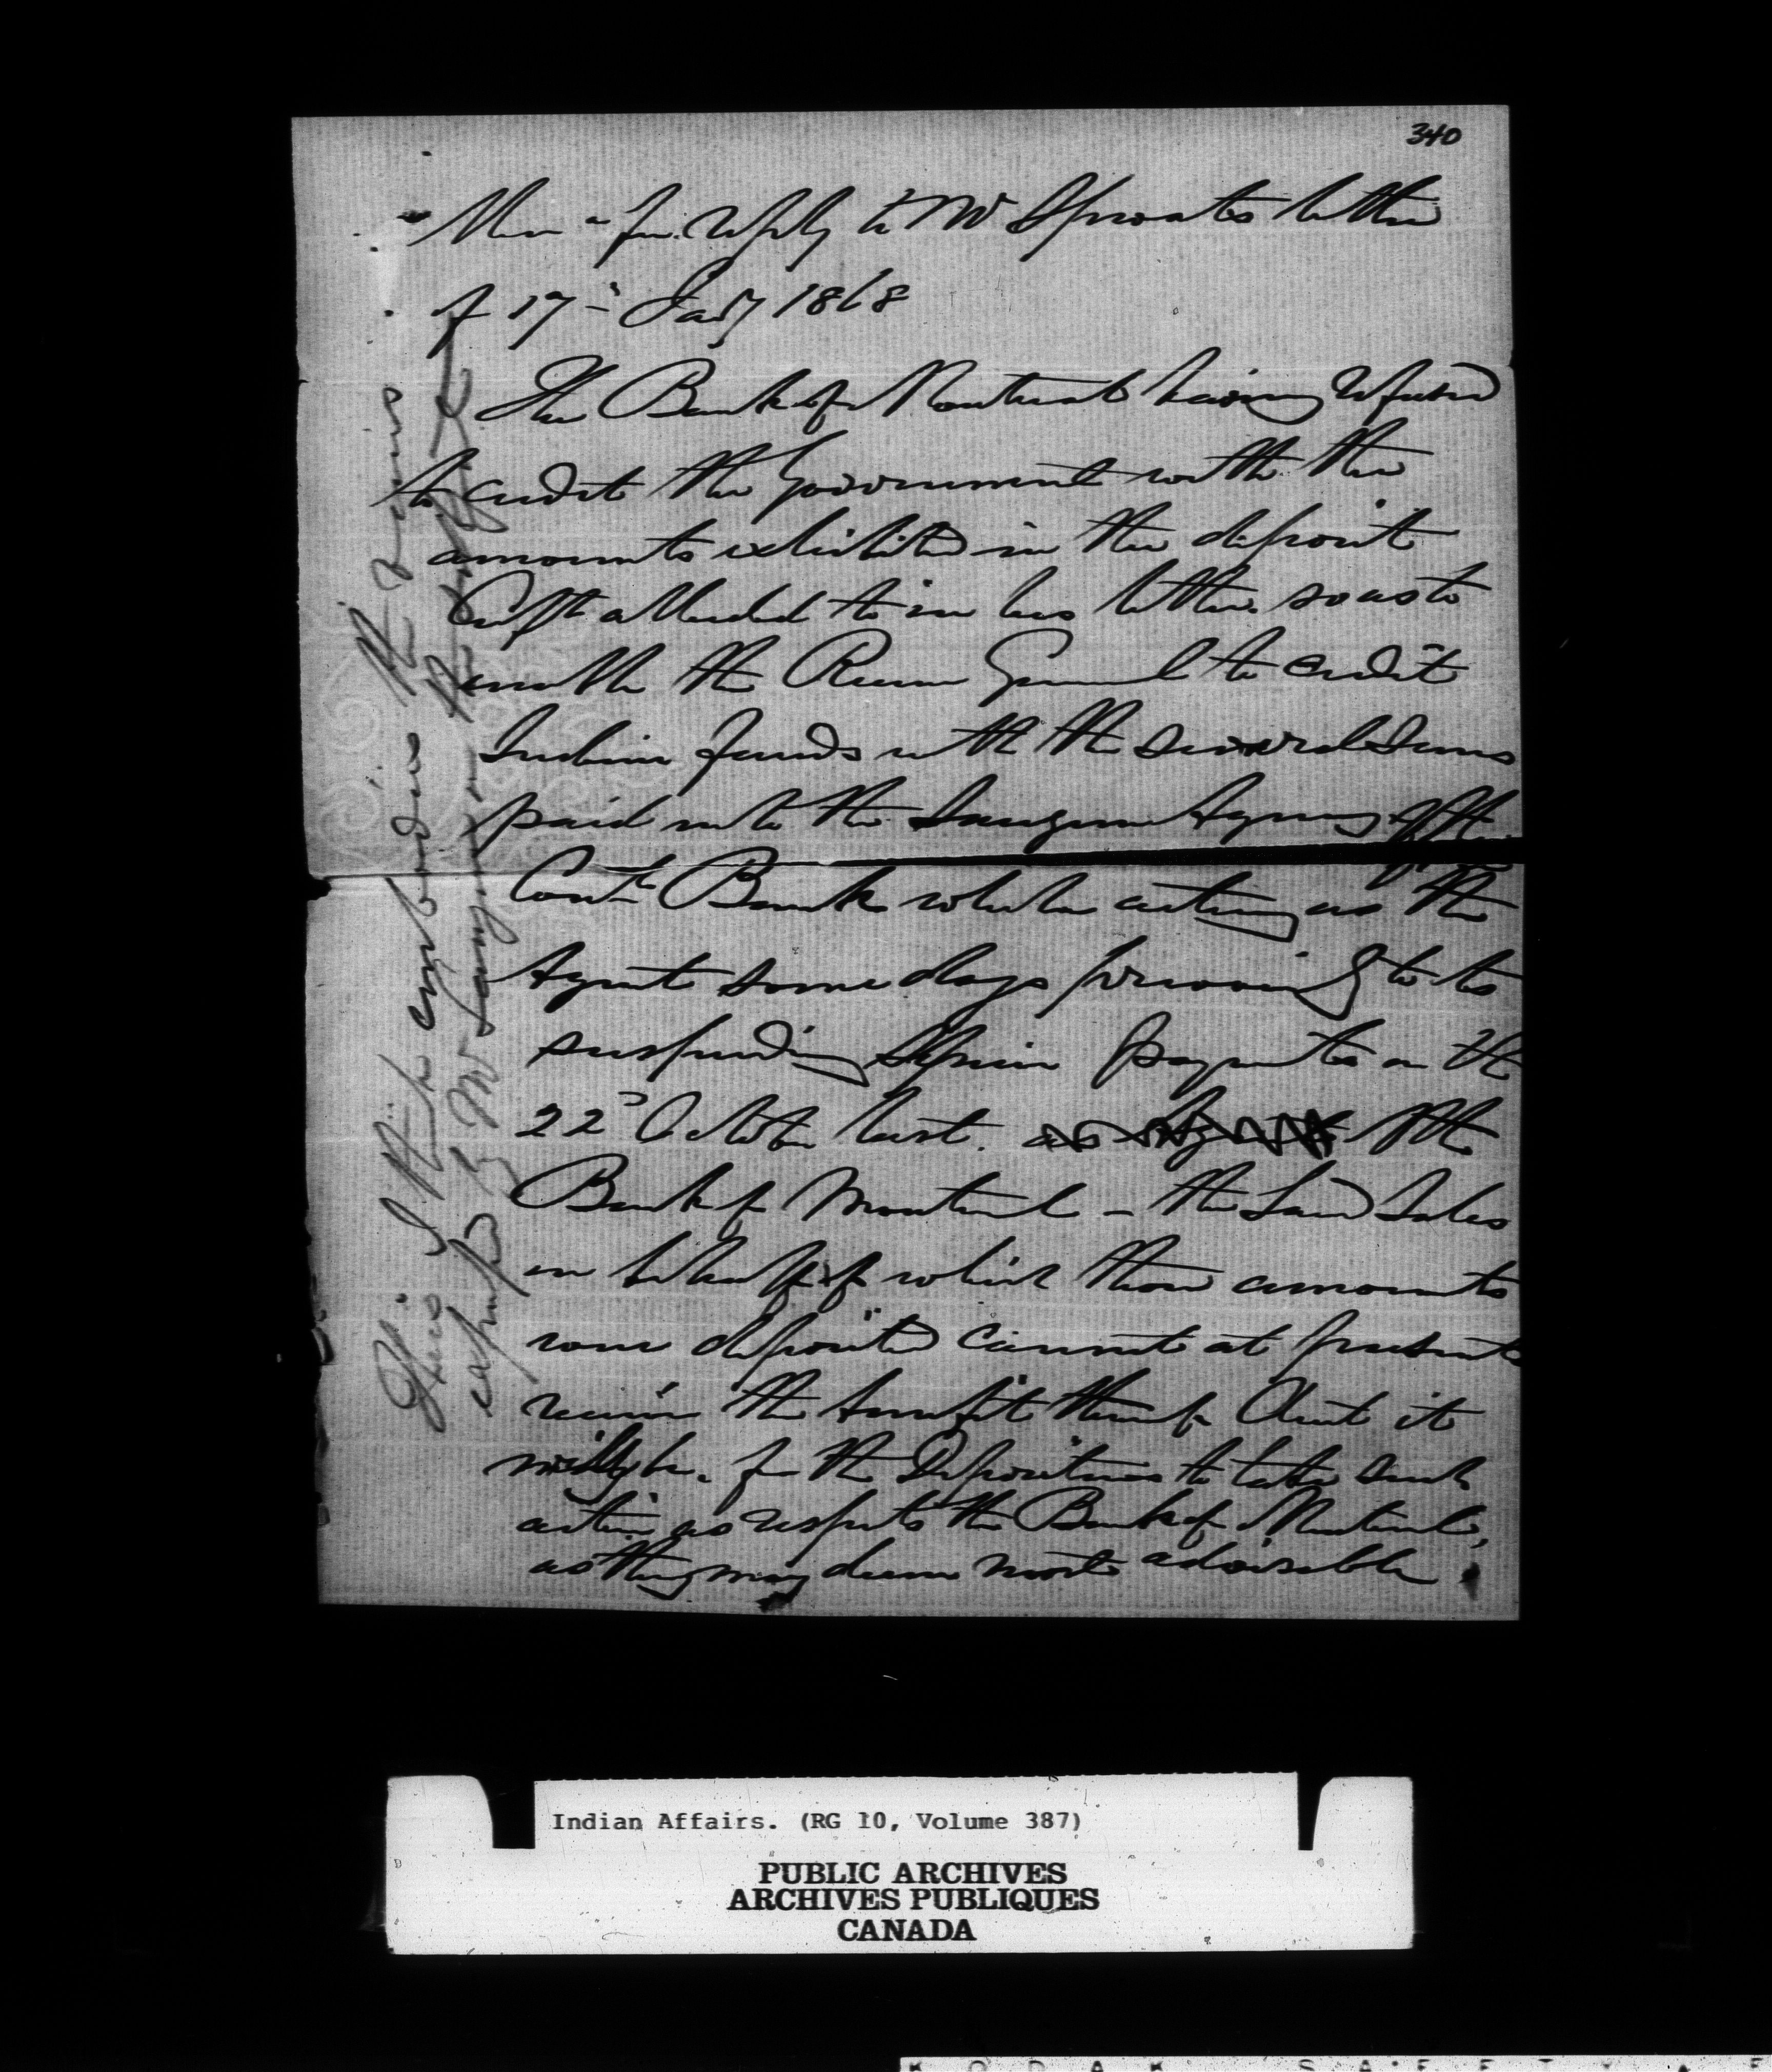 340
Mem° for reply to Mr Sproats letter
of 17th Jany 1868
The Bank of Montreal having refused
to credit the Government with the
amounts exhibited in the deposit
Certfs alluded to in his letter so as to
enable the Receiver General to credit
Indian funds with the several sums
paid into the Saugeen Agency of the
Coml Bank while acting as the
Agent some days previously to its
suspending Specie payments on the
22d October last. as Agent of the
Bank of Montreal - the Land Sales
on behalf of which these amounts
were deposited cannot at present
receive the benefit thereof And it
will be for the Depositors to take such
action as respects the Bank of Montreal,
as they may deem most advisable.
This I think embodies the views
expressed by Mr Langevin
Indian Affairs. (RG 10, Volume 387)
PUBLIC ARCHIVES
ARCHIVES PUBLIQUES
CANADA
KODAK SAFETY